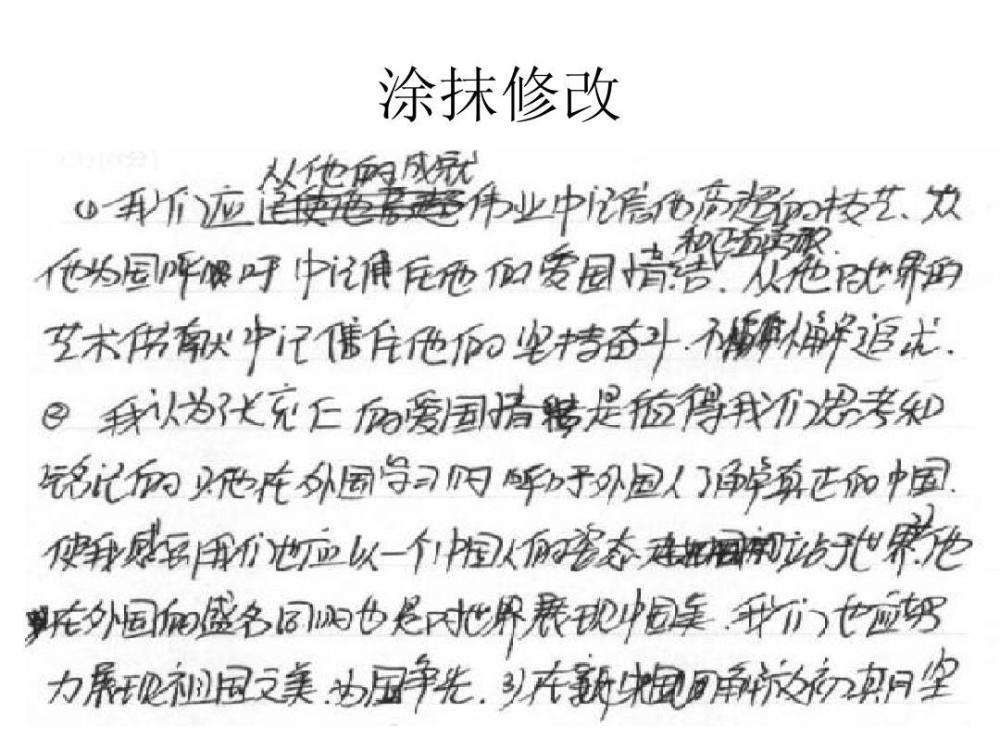 涂抹修改
从他的成就
①我们应伟业中记信他高超的技艺、从
和巨大贡献
他为国呼吁中记住他的爱国情结、从他对世界的
艺术贡献中记住他的坚持奋斗、不懈追求.
② 我认为张充仁的爱国情是值得我们思考和
铭记的 1.他在外国学习时呼于外国人了解真正的中国.
使我感到我们也应以一个中国人的姿态站于世界.2)他
在外国的盛名同时也是对世界展现中国美.我们也应努
力展现祖国文美.为国争先.3)在新中国解放前